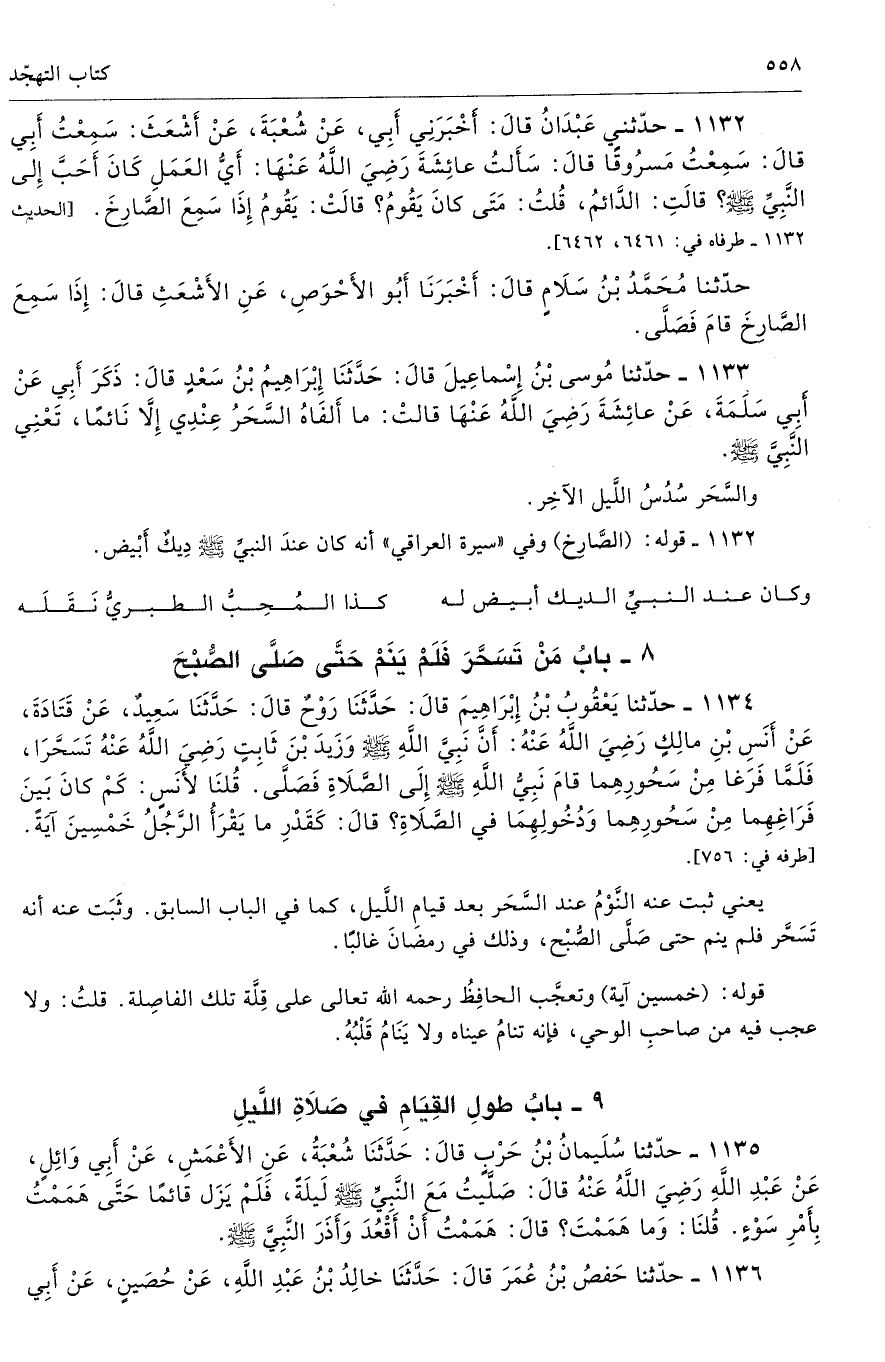 ٥٥٨
كتاب التهجّد
١١٣٢ ـ حدّثني عَبْدَانُ قالَ: أَخْبَرَنِي أَبِي، عَنْ شُعْبَةَ، عَنْ أَشْعَثَ: سَمِعْتُ أَبِي
قالَ: سَمِعْتُ مَسرُوقًا قالَ: سَأَلتُ عائِشَةَ رَضِيَ اللَّهُ عَنْهَا: أَيُّ العَمَلِ كَانَ أَحَبَّ إِلى
النَّبِيِّ ﷺ؟ قالَتِ: الدَّائمُ، قُلتُ: مَتَى كانَ يَقُومُ؟ قالَتْ: يَقُومُ إِذَا سَمِعَ الصَّارِخَ. [الحديث
١١٣٢ ـ طرفاه في: ٦٤٦١، ٦٤٦٢].
حدّثنا مُحَمَّدُ بْنُ سَلَامٍ قالَ: أَخْبَرَنَا أَبُو الأَحْوَصِ، عَنِ الأَشْعَثِ قالَ: إِذَا سَمِعَ
الصَّارِخَ قامَ فَصَلَّى.
١١٣٣ ـ حدّثنا مُوسى بْنُ إِسْماعِيلَ قالَ: حَدَّثَنَا إِبْرَاهِيمُ بْنُ سَعْدٍ قالَ: ذَكَرَ أَبِي عَنْ
أَبِي سَلَمَةَ، عَنْ عائِشَةَ رَضِيَ اللَّهُ عَنْهَا قالتْ: ما أَلفَاهُ السَّحَرُ عِنْدِي إِلَّا نَائمًا، تَعْنِي
النَّبِيَّ ﷺ.
والسَّحَر سُدُسُ اللَّيل الآخِر.
١١٣٢ ـ قوله: (الصَّارِخ) وفي «سيرة العراقي» أنه كان عندَ النبيِّ ﷺ دِيكٌ أَبْيض.
وكـان عـنـد الـنـبـيِّ الـديـك أبـيـض لـه كـذا الـمُـحِـبُّ الـطـبـريُّ نَـقَـلَـه
٨ ـ بابُ مَنْ تَسَحَّرَ فَلَمْ يَنَمْ حَتَّى صَلَّى الصُّبْحَ
١١٣٤ ـ حدّثنا يَعْقُوبُ بْنُ إِبْرَاهِيمَ قالَ: حَدَّثَنَا رَوْحٌ قالَ: حَدَّثَنَا سَعِيدٌ، عَنْ قَتَادَةَ،
عَنْ أَنَسِ بْنِ مالِكٍ رَضِيَ اللَّهُ عَنْهُ: أَنَّ نَبِيَّ اللَّهِ ﷺ وَزَيدَ بْنَ ثَابِتٍ رَضِيَ اللَّهُ عَنْهُ تَسَحَّرَا،
فَلَمَّا فَرَغا مِنْ سَحُورِهِما قامَ نَبِيُّ اللَّهِ ﷺ إِلَى الصَّلَاةِ فَصَلَّى. قُلنَا لأَنَسٍ: كَمْ كانَ بَينَ
فَرَاغِهِما مِنْ سَحُورِهِما وَدُخُولِهِمَا في الصَّلَاةِ؟ قالَ: كَقَدْرِ ما يَقْرَأُ الرَّجُلُ خَمْسِينَ آيَةً.
[طرفه في: ٧٥٦].
يعني ثبت عنه النَّوْمُ عند السَّحَر بعد قيامِ اللَّيل، كما في الباب السابق. وثَبَت عنه أنه
تَسَحَّر فلم ينم حتى صَلَّى الصُّبْح، وذلك في رمضَانَ غالبًا.
قوله: (خمسين آية) وتعجَّب الحافِظُ رحمه الله تعالى على قِلَّة تلك الفاصِلة. قلتُ: ولا
عجب فيه من صاحبِ الوحي، فإنه تنامُ عيناه ولا يَنَامُ قَلْبُهُ.
٩ ـ بابُ طولِ القِيَامِ في صَلَاةِ اللَّيلِ
١١٣٥ ـ حدّثنا سُلَيمانُ بْنُ حَرْبٍ قالَ: حَدَّثَنَا شُعْبَةُ، عَنِ الأَعْمَشِ، عَنْ أَبِي وَائِلٍ،
عَنْ عَبْدِ اللَّهِ رَضِيَ اللَّهُ عَنْهُ قالَ: صَلَّيتُ مَعَ النَّبِيِّ ﷺ لَيلَةً، فَلَمْ يَزَل قائمًا حَتَّى هَمَمْتُ
بِأَمْرِ سَوْءٍ. قُلنَا: وَما هَمَمْتَ؟ قالَ: هَمَمْتُ أَنْ أَقْعُدَ وَأَذَرَ النَّبِيَّ ﷺ.
١١٣٦ ـ حدّثنا حَفصُ بْنُ عُمَرَ قالَ: حَدَّثَنَا خالِدُ بْنُ عَبْدِ اللَّهِ، عَنْ حُصَينٍ، عَنْ أَبِي